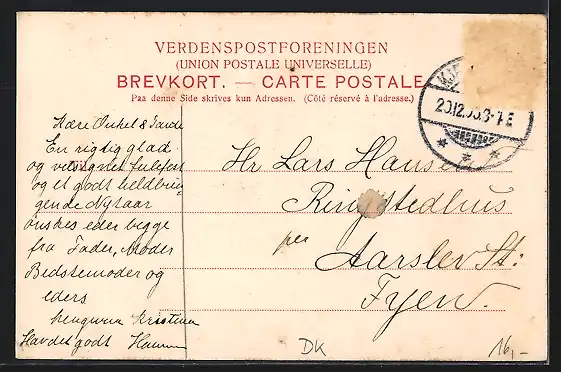 VERDENSPOSTFORENINGEN
(UNION POSTALE UNIVERSELLE)
BREVKORT. — CARTE POSTALE
Paa denne Side skrives kun Adressen. (Côté réservé à l'adresse.)
Kære Onkel &
En rigtig glad
og velsignet Julefest
og et godt heldbrin
gende Nytaar
ønskes eder begge
fra Fader, Moder
Bedstemoder og
eders
hengivne Kristina
Havdet godt
Hr Lars Hansen
Ringstedhus
per
Aarslev St:
Fyen.
DK
16,-